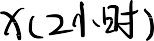 x(2小时)